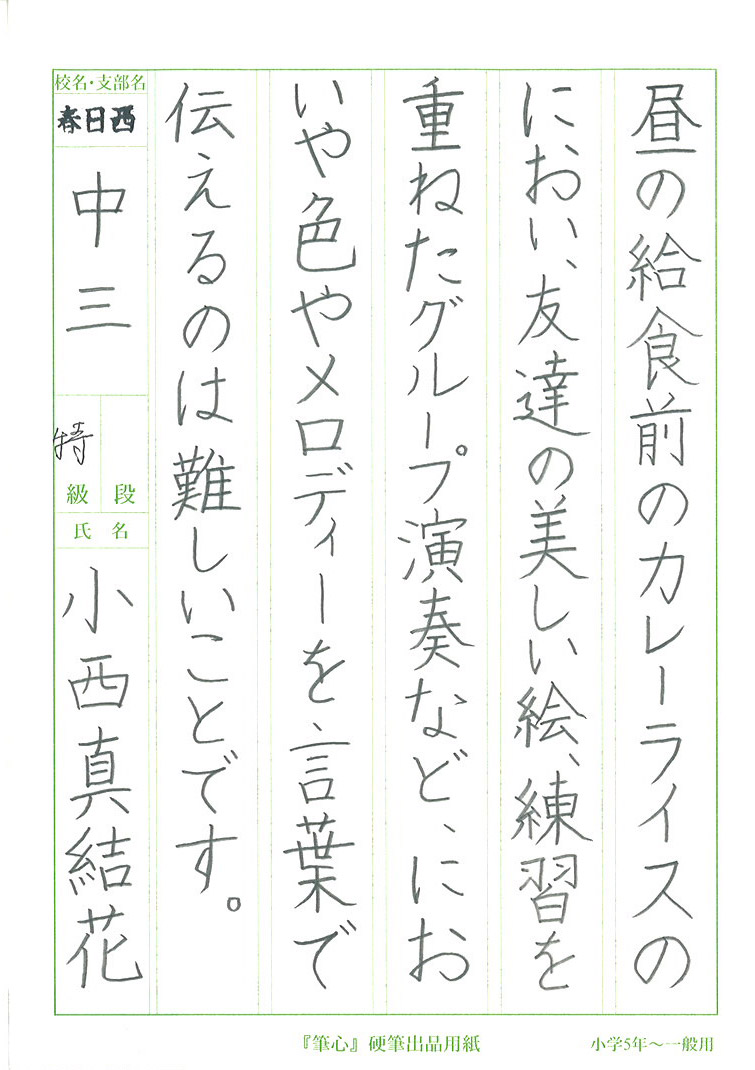 昼の給食前のカレーライスの
におい、友達の美しい絵、練習を
重ねたグループ演奏など、にお
いや色やメロディーを言葉で
伝えるのは難しいことです。
校名・支部名
春日西
中三
特
級 段
氏 名
小西真結花
『筆心』硬筆出品用紙
小学5年〜一般用